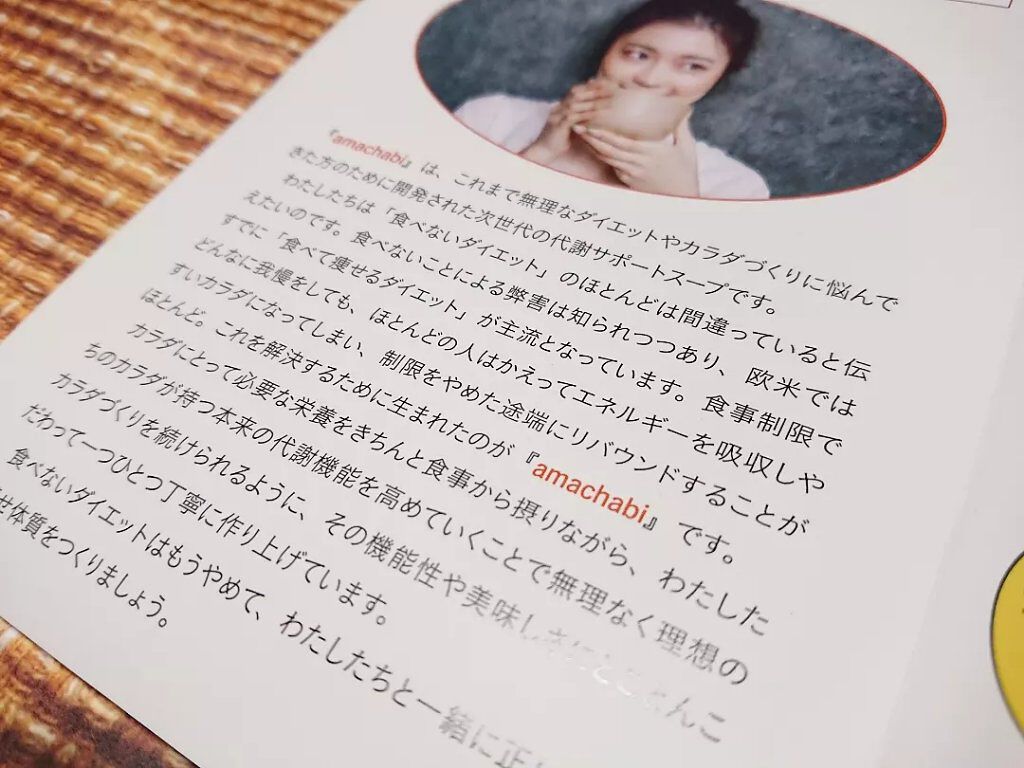 『amachabi』は、これまで無理なダイエットやカラダづくりに悩んで
きた方のために開発された次世代の代謝サポートスープです。
わたしたちは「食べないダイエット」のほとんどは間違っていると伝
えたいのです。食べないことによる弊害は知られつつあり、欧米では
すでに「食べて痩せるダイエット」が主流となっています。食事制限で
どんなに我慢をしても、ほとんどの人はかえってエネルギーを吸収しや
すいカラダになってしまい、制限をやめた途端にリバウンドすることが
ほとんど。これを解決するために生まれたのが『amachabi』です。
カラダにとって必要な栄養をきちんと食事から摂りながら、わたした
ちのカラダが持つ本来の代謝機能を高めていくことで無理なく理想の
カラダづくりを続けられるように、その機能性や美味しさにとことんこ
だわって一つひとつ丁寧に作り上げています。
食べないダイエットはもうやめて、わたしたちと一緒に正
せ体質をつくりましょう。